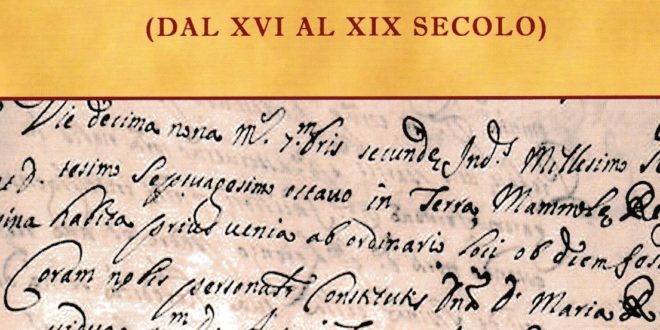 (DAL XVI AL XIX SECOLO)
Die decima nona m.s 7mbris secundę Ind.s Millesimo
tesimo septuagesimo octavo in Terra Mammolę
habita prius venia ab ordinario loci ob diem
Coram nobis personalr Constitutis Dna D. Maria